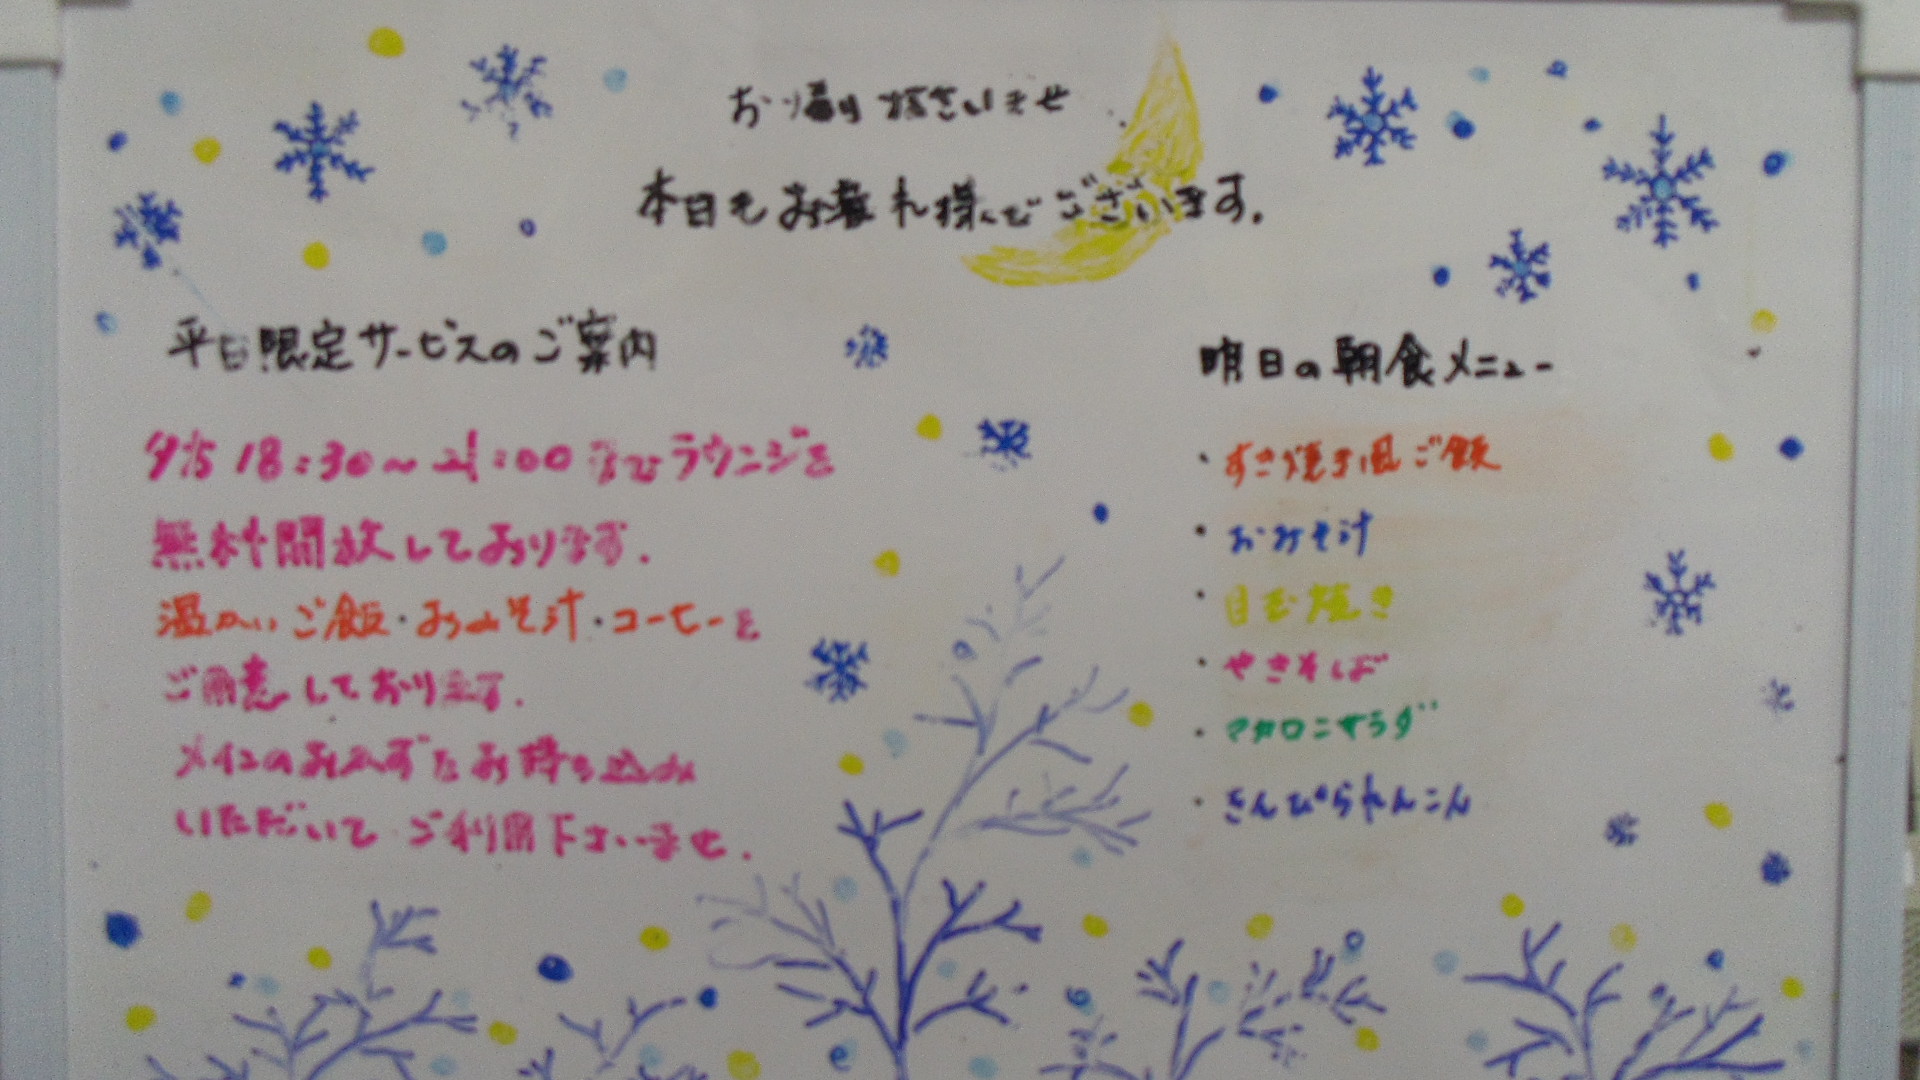 お帰り なさいませ
本日もお疲れ様でございます。
平日限定サービスのご案内
夕方 18:30〜21:00までラウンジを
無料開放しております.
温かいご飯・おみそ汁・コーヒーを
ご用意しております.
メインのおかずをお持ち込み
いただいて ご利用下さいませ.
明日の朝食メニュー
・すきやき風ご飯
・おみそ汁
・目玉焼き
・やきそば
・マカロニサラダ
・きんぴられんこん